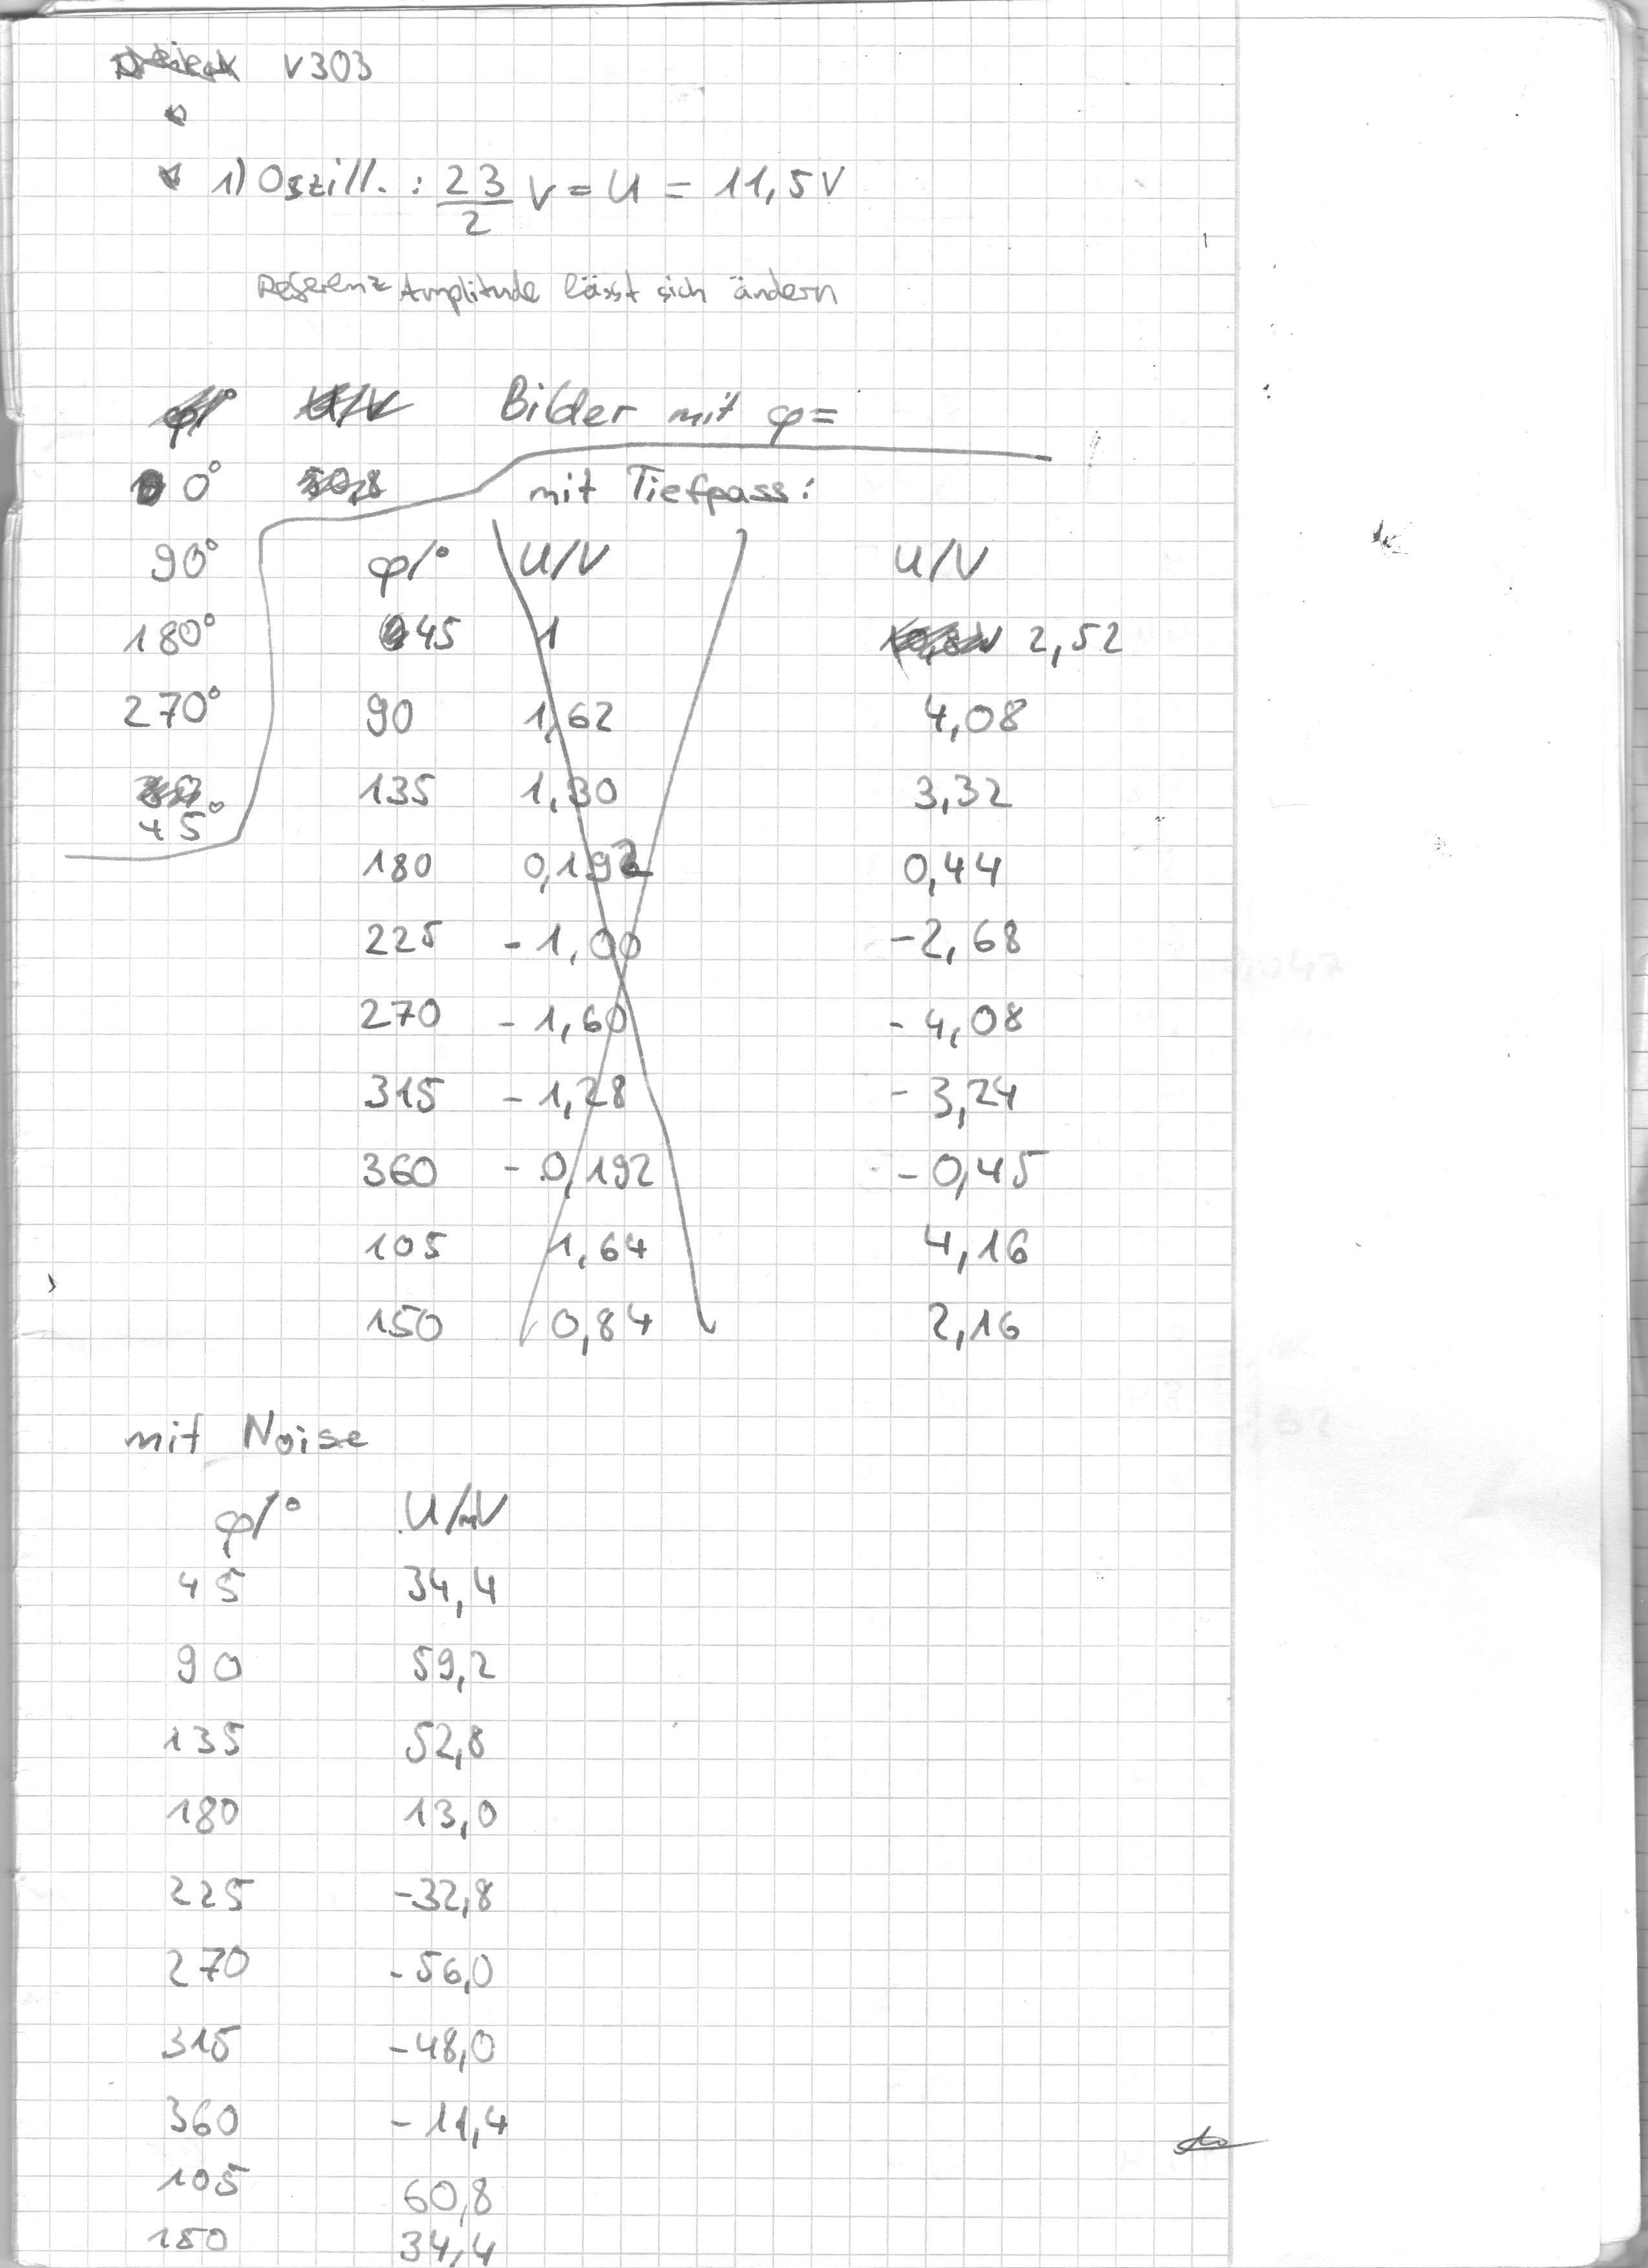 V303
1) Oszill. : 23/2 V = U = 11,5V
Referenz Amplitude lässt sich ändern
φ/° U/V Bilder mit φ=
0° 50,8 mit Tiefpass:
90° φ/° U/V U/V
180° 45 1 2,52
270° 90 1,62 4,08
135 1,30 3,32
45°
180 0,192 0,44
225 -1,00 -2,68
270 -1,60 -4,08
315 -1,28 -3,24
360 -0,192 -0,45
105 1,64 4,16
150 0,84 2,16
mit Noise
φ/° U/mV
45 34,4
90 59,2
135 52,8
180 13,0
225 -32,8
270 -56,0
315 -48,0
360 -11,4
105 60,8
150 34,4